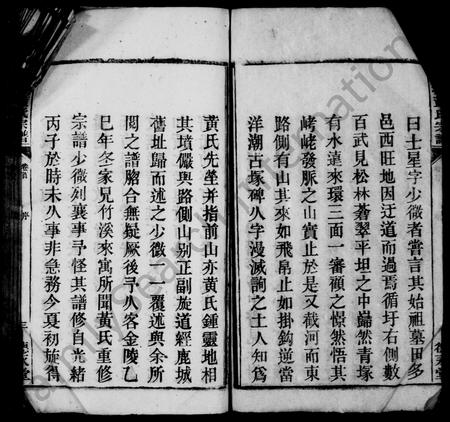 曰士星字少微者嘗言其始祖墓田多
邑西旺地因迂道而過焉循圩右側數
百武見松林蒼翠平坦之中巋然青塚
有水遠來環三面一審顧之憬然悟其
峔峔發脈之山實止於是又截河而東
路側有山其來如飛帛止如掛鈎逆當
洋潮古塚碑人字漫滅詢之土人知為
黃氏先塋并指前山亦黃氏鍾靈地相
其墳儼與路側山別正副旋道經鹿城
舊址歸而述之少微一一覆述與余所
閱之譜脗合無疑厥後予人客金陵乙
巳年冬家兄竹溪來寓所聞黃氏重修
宗譜少微列襄事予怪其譜修自光緒
丙子於時未久事非急務今夏初旋得